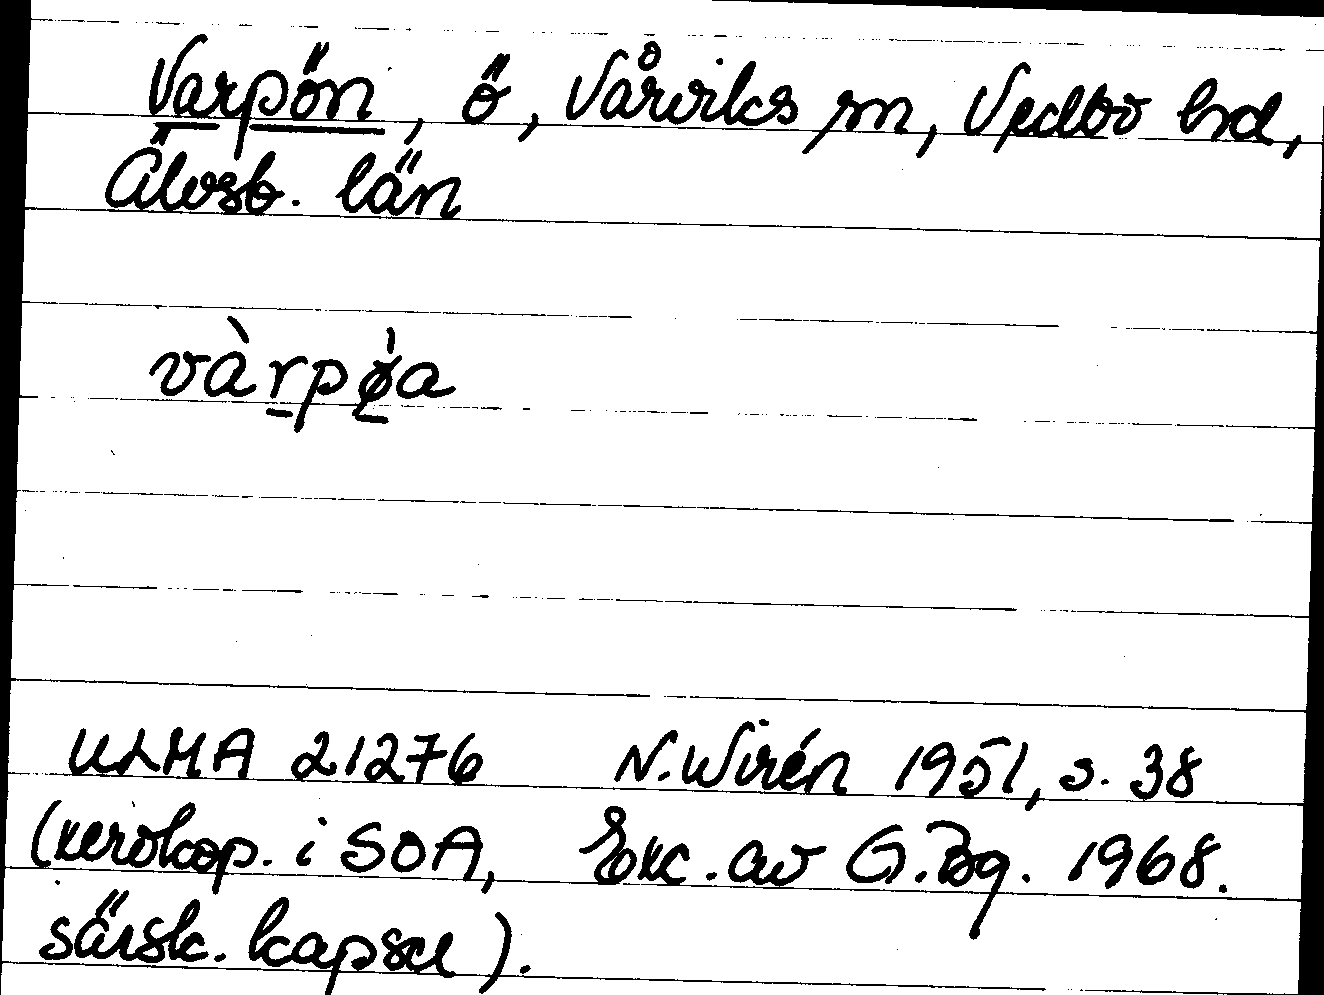 Varpön, ö, Vårviks sn, Vedbo hd,
Älvsb. län
vàrpø̀a
ULMA 21276 N. Wirén 1951, s. 38
(xerokop. i SOA, Exc. av G. Bg. 1968.
särsk. kapsel).